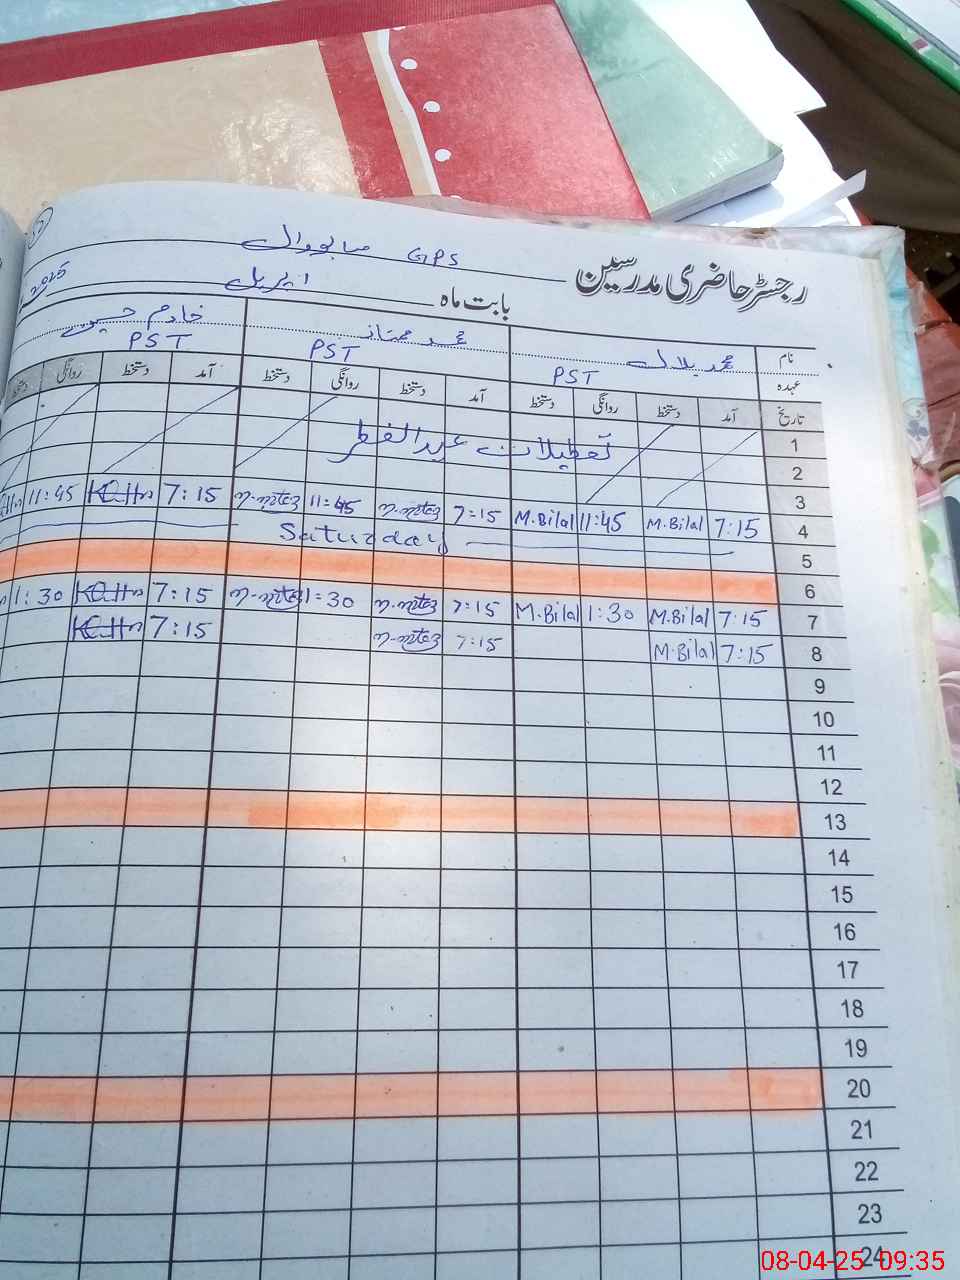 GPS صابووال
رجسٹر حاضری مدرسین
بابت ماہ اپریل 2025
نام محمد بلال محمد ممتاز خادم حسین
عہدہ PST PST PST
تاریخ آمد دستخط روانگی دستخط آمد دستخط روانگی دستخط آمد دستخط روانگی دستخط
1
تعطیلات عید الفطر
2
3
4 7:15 M.Bilal 11:45 M.Bilal 7:15 11:45 7:15 11:45
Saturday
5
6
7 7:15 M.Bilal 1:30 M.Bilal 7:15 1:30 7:15 1:30
8 7:15 M.Bilal 7:15 7:15
9
10
11
12
13
14
15
16
17
18
19
20
21
22
23
24
08-04-25 09:35